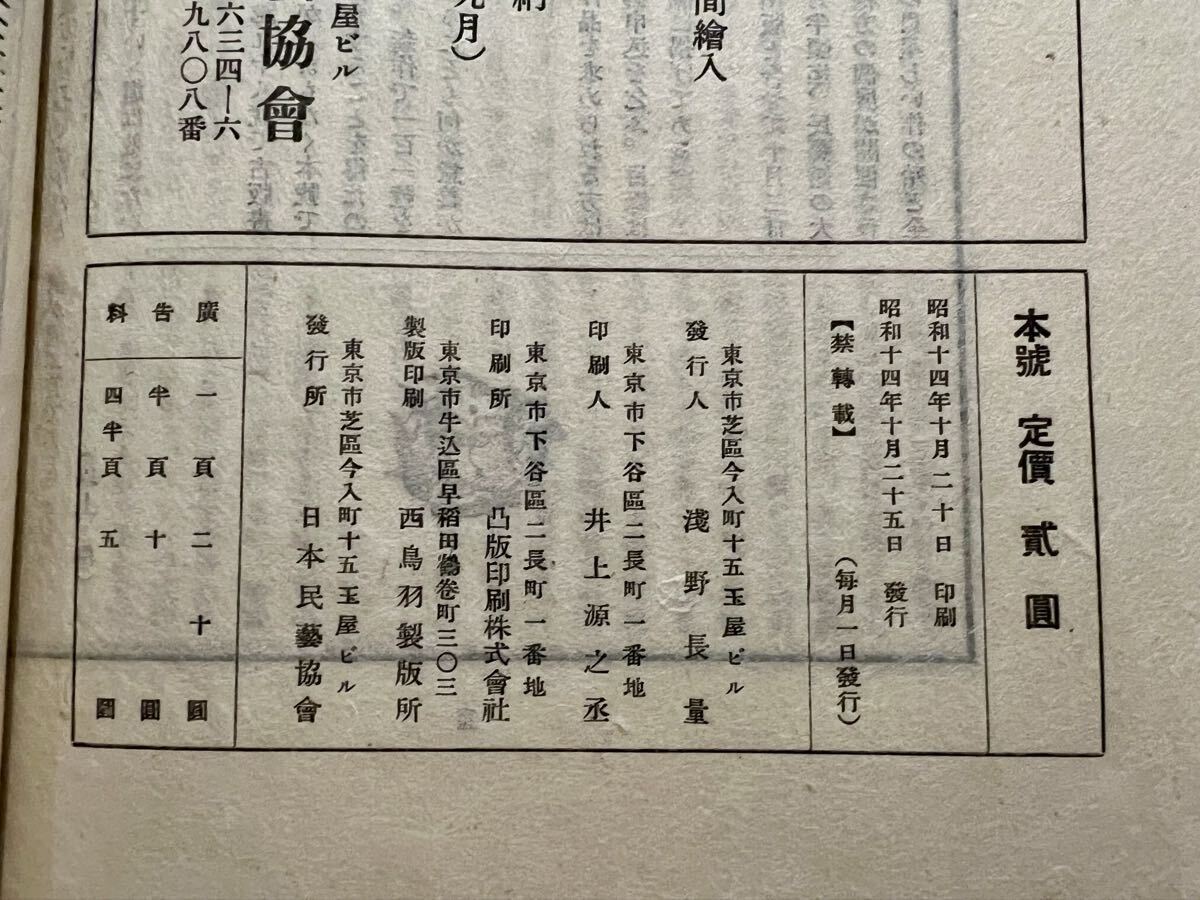 間繪入
九月）
屋ビル
協會
六三四—六
九八〇八番
本號 定價 貳圓
昭和十四年十月二十日 印刷
昭和十四年十月二十五日 發行
【禁轉載】 （每月一日發行）
東京市芝區今入町十五玉屋ビル
發行人 淺野長量
東京市下谷區二長町一番地
印刷人 井上源之丞
東京市下谷區二長町一番地
印刷所 凸版印刷株式會社
東京市牛込區早稻田鶴卷町三〇三
製版印刷 西鳥羽製版所
東京市芝區今入町十五玉屋ビル
發行所 日本民藝協會
廣告料
一頁 二十圓
半頁 十圓
四半頁 五圓